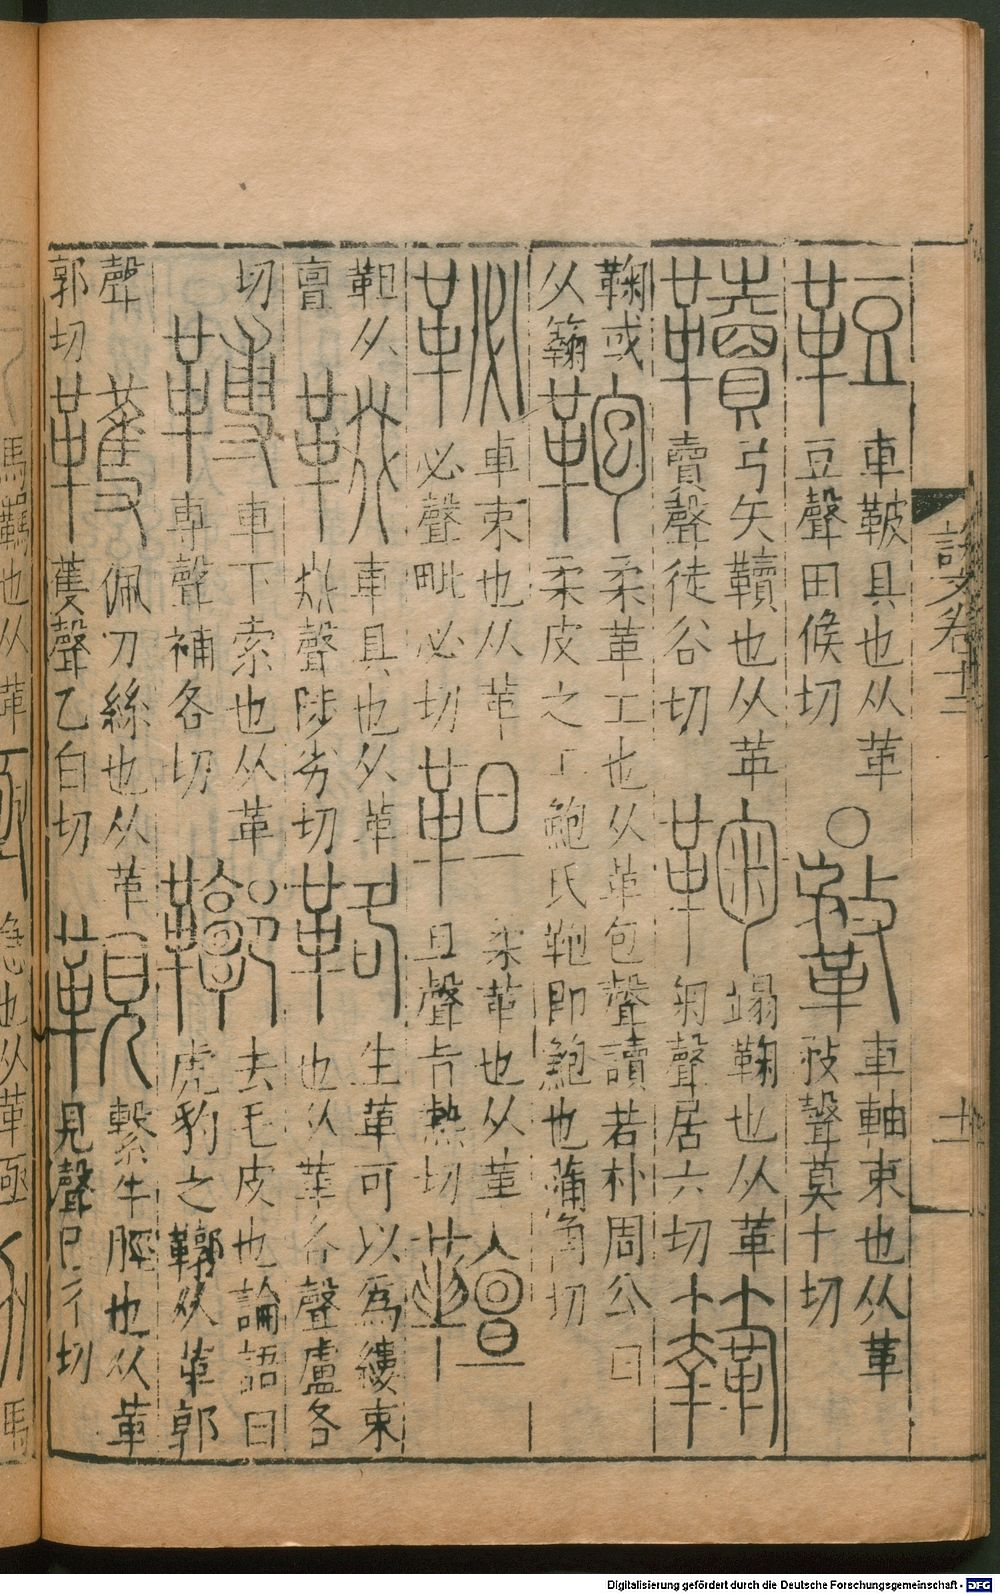 說文卷十二
十一
䩺 車鞁具也从革
豆聲田候切
○
鞪 車軸束也从革
敄聲莫卜切
韇 弓矢韇也从革
賣聲徒谷切
鞠 蹋鞠也从革
匊聲居六切
鞠或
从
鞄 柔革工也从革包聲讀若朴周公曰
柔皮之工鮑氏鞄即鮑也蒲角切
䩛 車束也从革
必聲毗必切
靼 柔革也从革
旦聲旨熱切
靼从
亶
車具也从革
叕聲陟劣切
鞈 生革可以為縷束
也从革各聲盧各
切
車下索也从革
尃聲補各切
鞹 去毛皮也論語曰
虎豹之鞹从革郭
聲
郭切
韄 佩刀絲也从革
蒦聲乙白切
繫牛脛也从革
見聲己彳切
馬羈也从革
急也从革亟
馬
Digitalisierung gefördert durch die Deutsche Forschungsgemeinschaft - DFG